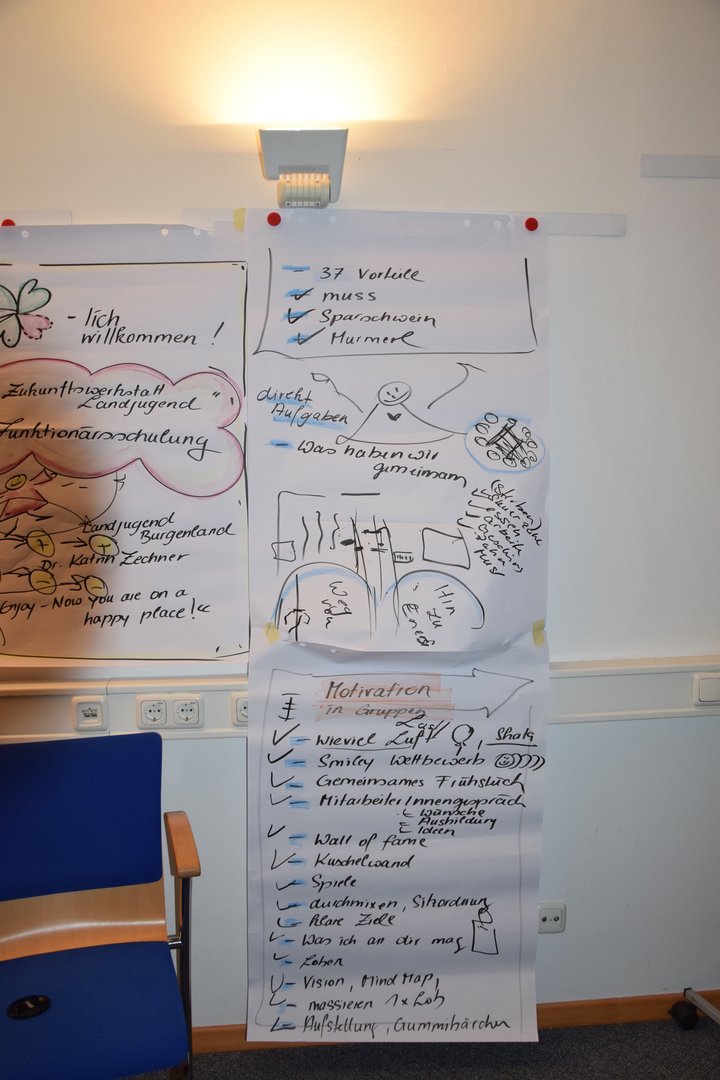 - lich
willkommen !
Zukunftswerkstatt
Landjugend "
Funktionärsschulung
Landjugend
Burgenland
Dr. Katrin Zechner
Enjoy - Now you are on a
happy place!"
- 37 Vorteile
muss
Sparschwein
Murmerl
direkt
Aufgaben
- Was haben wir
gemeinsam
Weg
von
Hin
zu
Motivation
in Gruppen
- wieviel Luft , Shaka
- Smiley Wettbewerb
- Gemeinsames Frühstück
- MitarbeiterInnengespräch
- Wünsche
- Ausbildung
- Ideen
- Wall of fame
- Kuschelwand
- Spiele
- durchmixen, Sitzordnung
- klare Ziele
- Was ich an dir mag
- Loben
- Vision, Mind Map,
- massieren 1x Lob
- Aufstellung, Gummibärchen